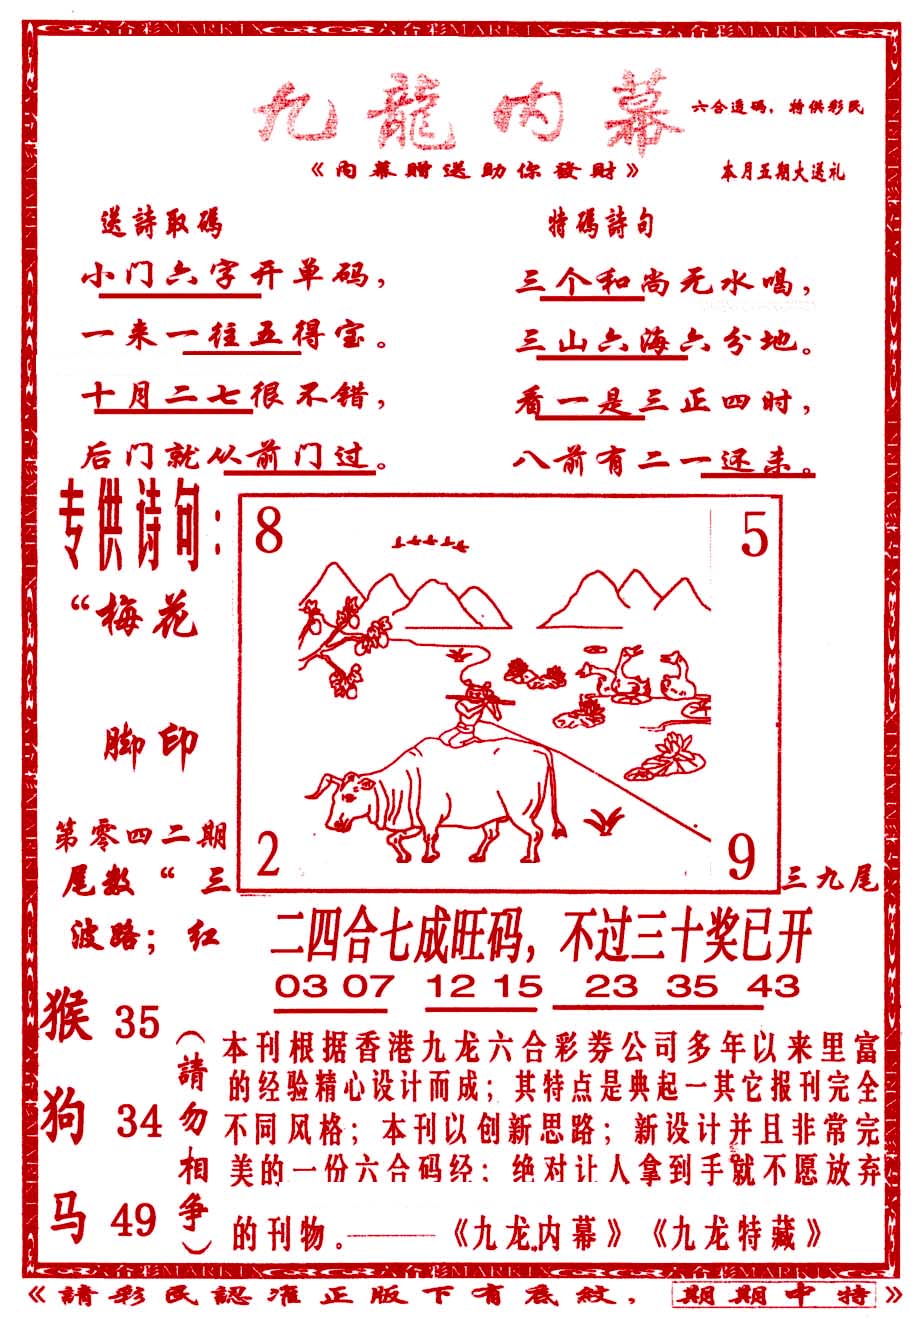 九龍内幕
六合透码，特供彩民
《内幕赠送助你發財》
本月五期大送礼
送詩取碼
小门六字开单码，
一来一往五得宝。
十月二七很不错，
后门就从前门过。
特碼詩句
三个和尚无水喝，
三山六海六分地。
看一是三正四时，
八前有二一还来。
专供诗句：
“梅花
脚印
8
5
2
9
第零四二期
尾数“三
三九尾
波路；红
二四合七成旺码，不过三十奖已开
03 07 12 15 23 35 43
猴 35
狗 34
马 49
（請勿相争）
本刊根据香港九龙六合彩券公司多年以来里富
的经验精心设计而成；其特点是典起一其它报刊完全
不同风格；本刊以创新思路；新设计并且非常完
美的一份六合码经；绝对让人拿到手就不愿放弃
的刊物。——《九龙内幕》《九龙特藏》
《請彩民認准正版下有底紋，期期中特》